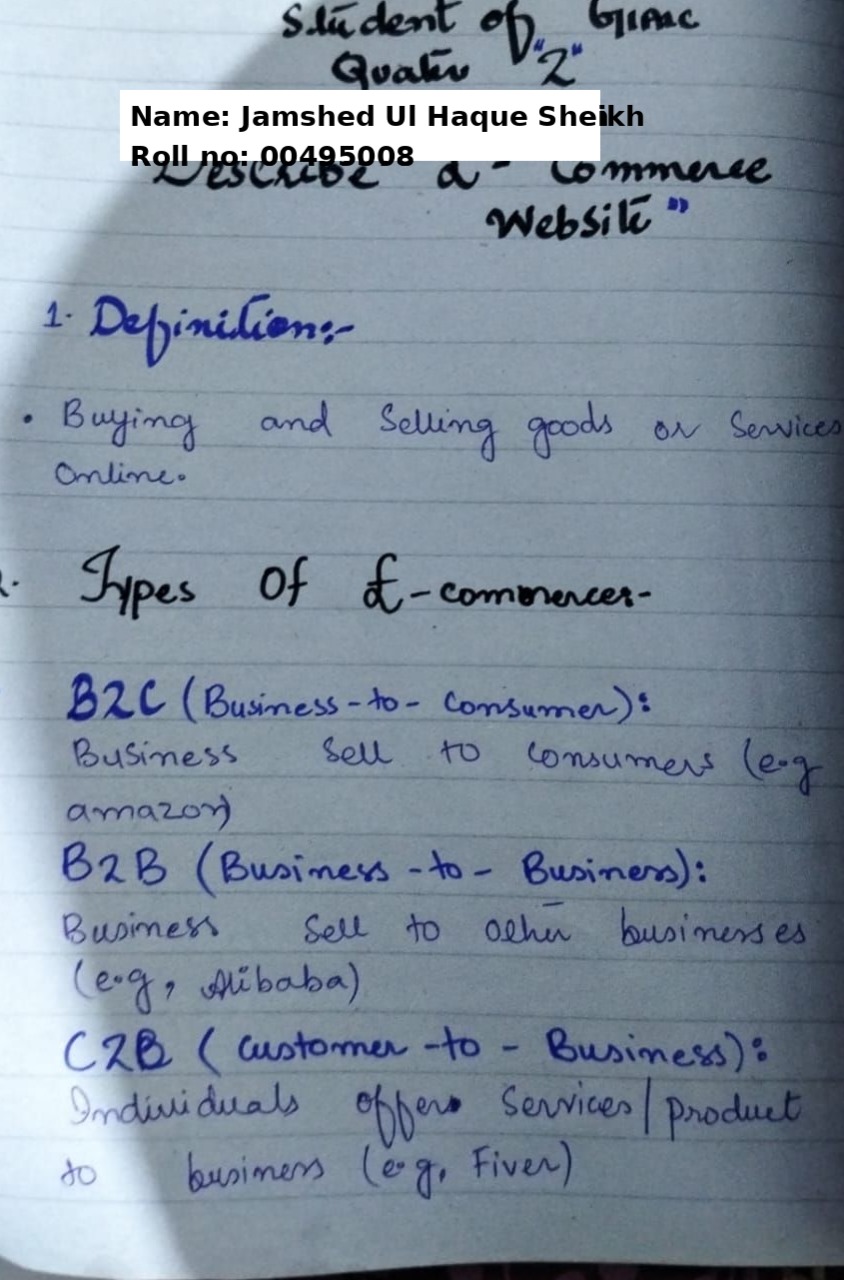 Student of GIAIC
Quater "2"
Name: Jamshed Ul Haque Sheikh
Roll no: 00495008
Describe a - Commerce
Website"
1. Definition:-
• Buying and Selling goods or Services
Online.
2. Types Of E-commerces-
B2C (Business-to-Consumer):
Business Sell to Consumers (e.g
amazon)
B2B (Business-to-Business):
Business Sell to other businesses
(e.g, Alibaba)
C2B (Customer-to-Business):
Individuals offers Services/product
to business (e.g, Fiver)